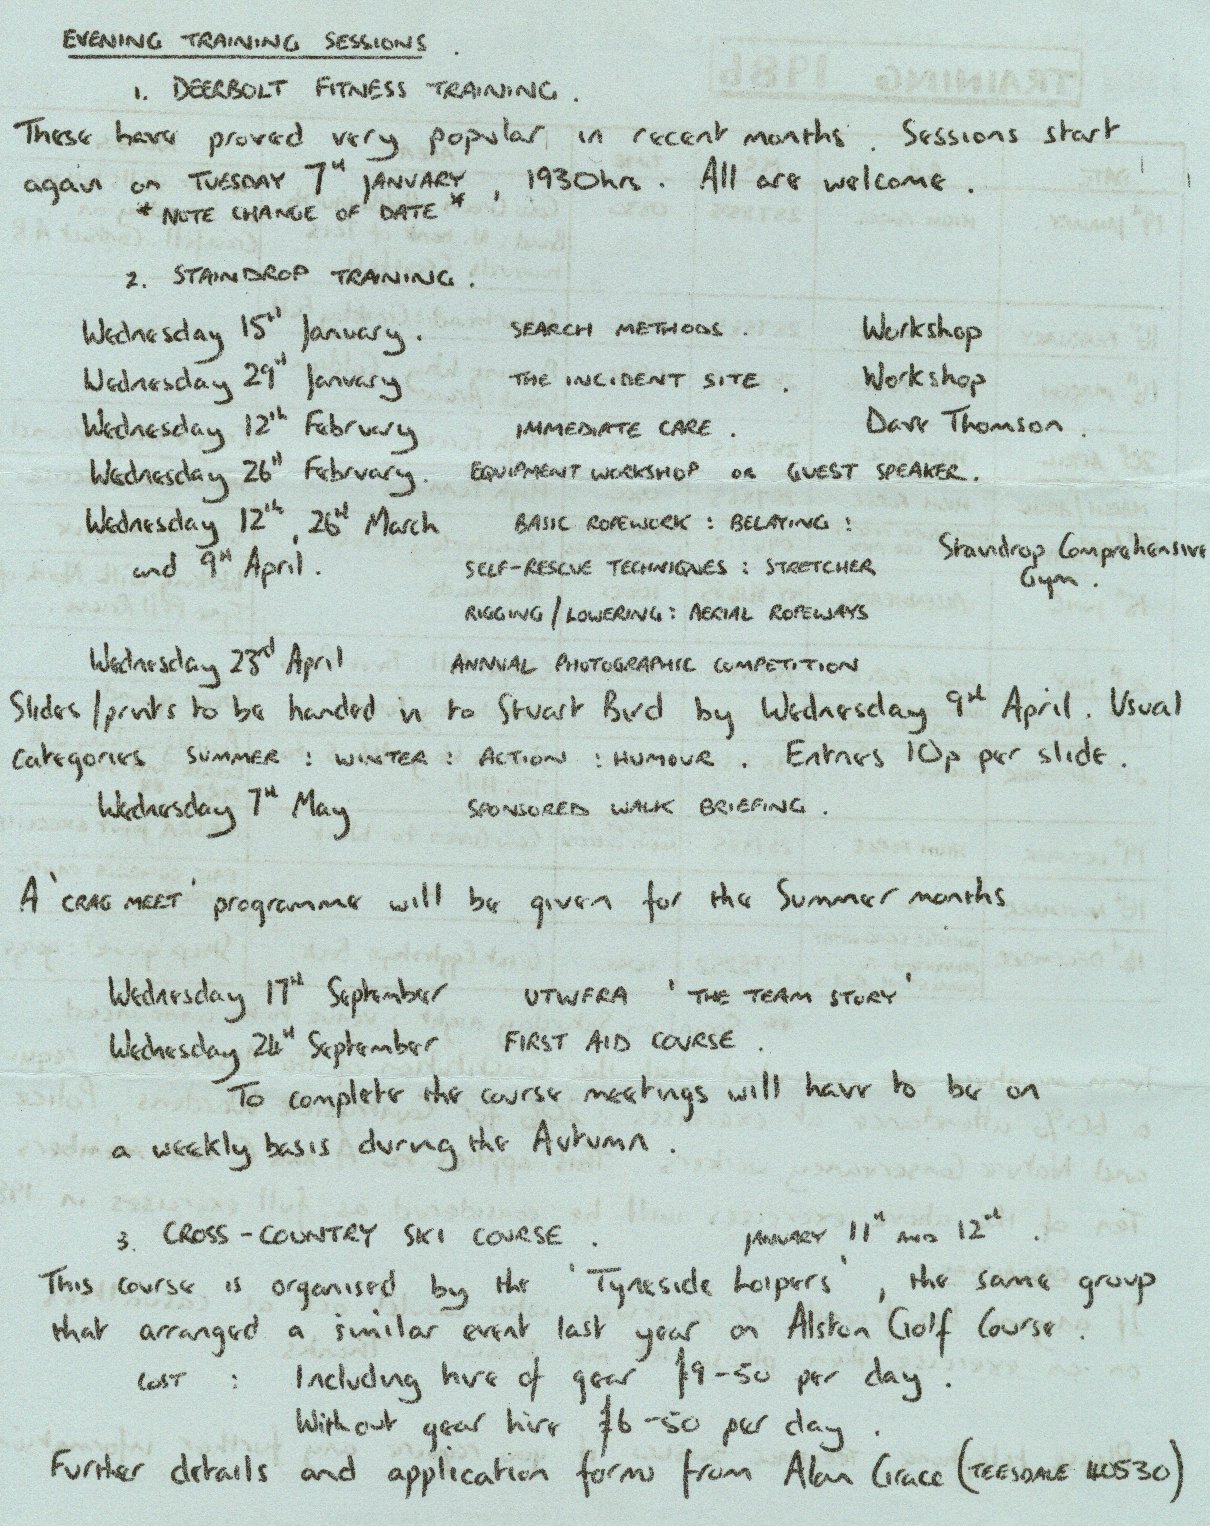 EVENING TRAINING SESSIONS.
1. DEERBOLT FITNESS TRAINING.
These have proved very popular in recent months. Sessions start
again on TUESDAY 7th JANUARY, 1930hrs. All are welcome.
* NOTE CHANGE OF DATE *
2. STAINDROP TRAINING.
Wednesday 15th January. SEARCH METHODS. Workshop
Wednesday 29th January THE INCIDENT SITE. Workshop
Wednesday 12th February IMMEDIATE CARE. Dave Thomson.
Wednesday 26th February. EQUIPMENT WORKSHOP OR GUEST SPEAKER.
Wednesday 12th, 26th March BASIC ROPEWORK : BELAYING :
and 9th April. SELF-RESCUE TECHNIQUES : STRETCHER Staindrop Comprehensive
RIGGING/LOWERING : AERIAL ROPEWAYS Gym.
Wednesday 23rd April ANNUAL PHOTOGRAPHIC COMPETITION
Slides/prints to be handed in to Stuart Bird by Wednesday 9th April. Usual
categories SUMMER : WINTER : ACTION : HUMOUR. Entries 10p per slide.
Wednesday 7th May SPONSORED WALK BRIEFING.
A 'CRAG MEET' programme will be given for the Summer months
Wednesday 17th September UTWFRA 'THE TEAM STORY'
Wednesday 24th September FIRST AID COURSE.
To complete the course meetings will have to be on
a weekly basis during the Autumn.
3. CROSS-COUNTRY SKI COURSE. JANUARY 11th AND 12th.
This course is organised by the 'Tyneside Loipers', the same group
that arranged a similar event last year on Alston Golf Course.
COST : Including hire of gear £9-50 per day.
Without gear hire £6-50 per day.
Further details and application forms from Alan Grace (TEESDALE 40530)